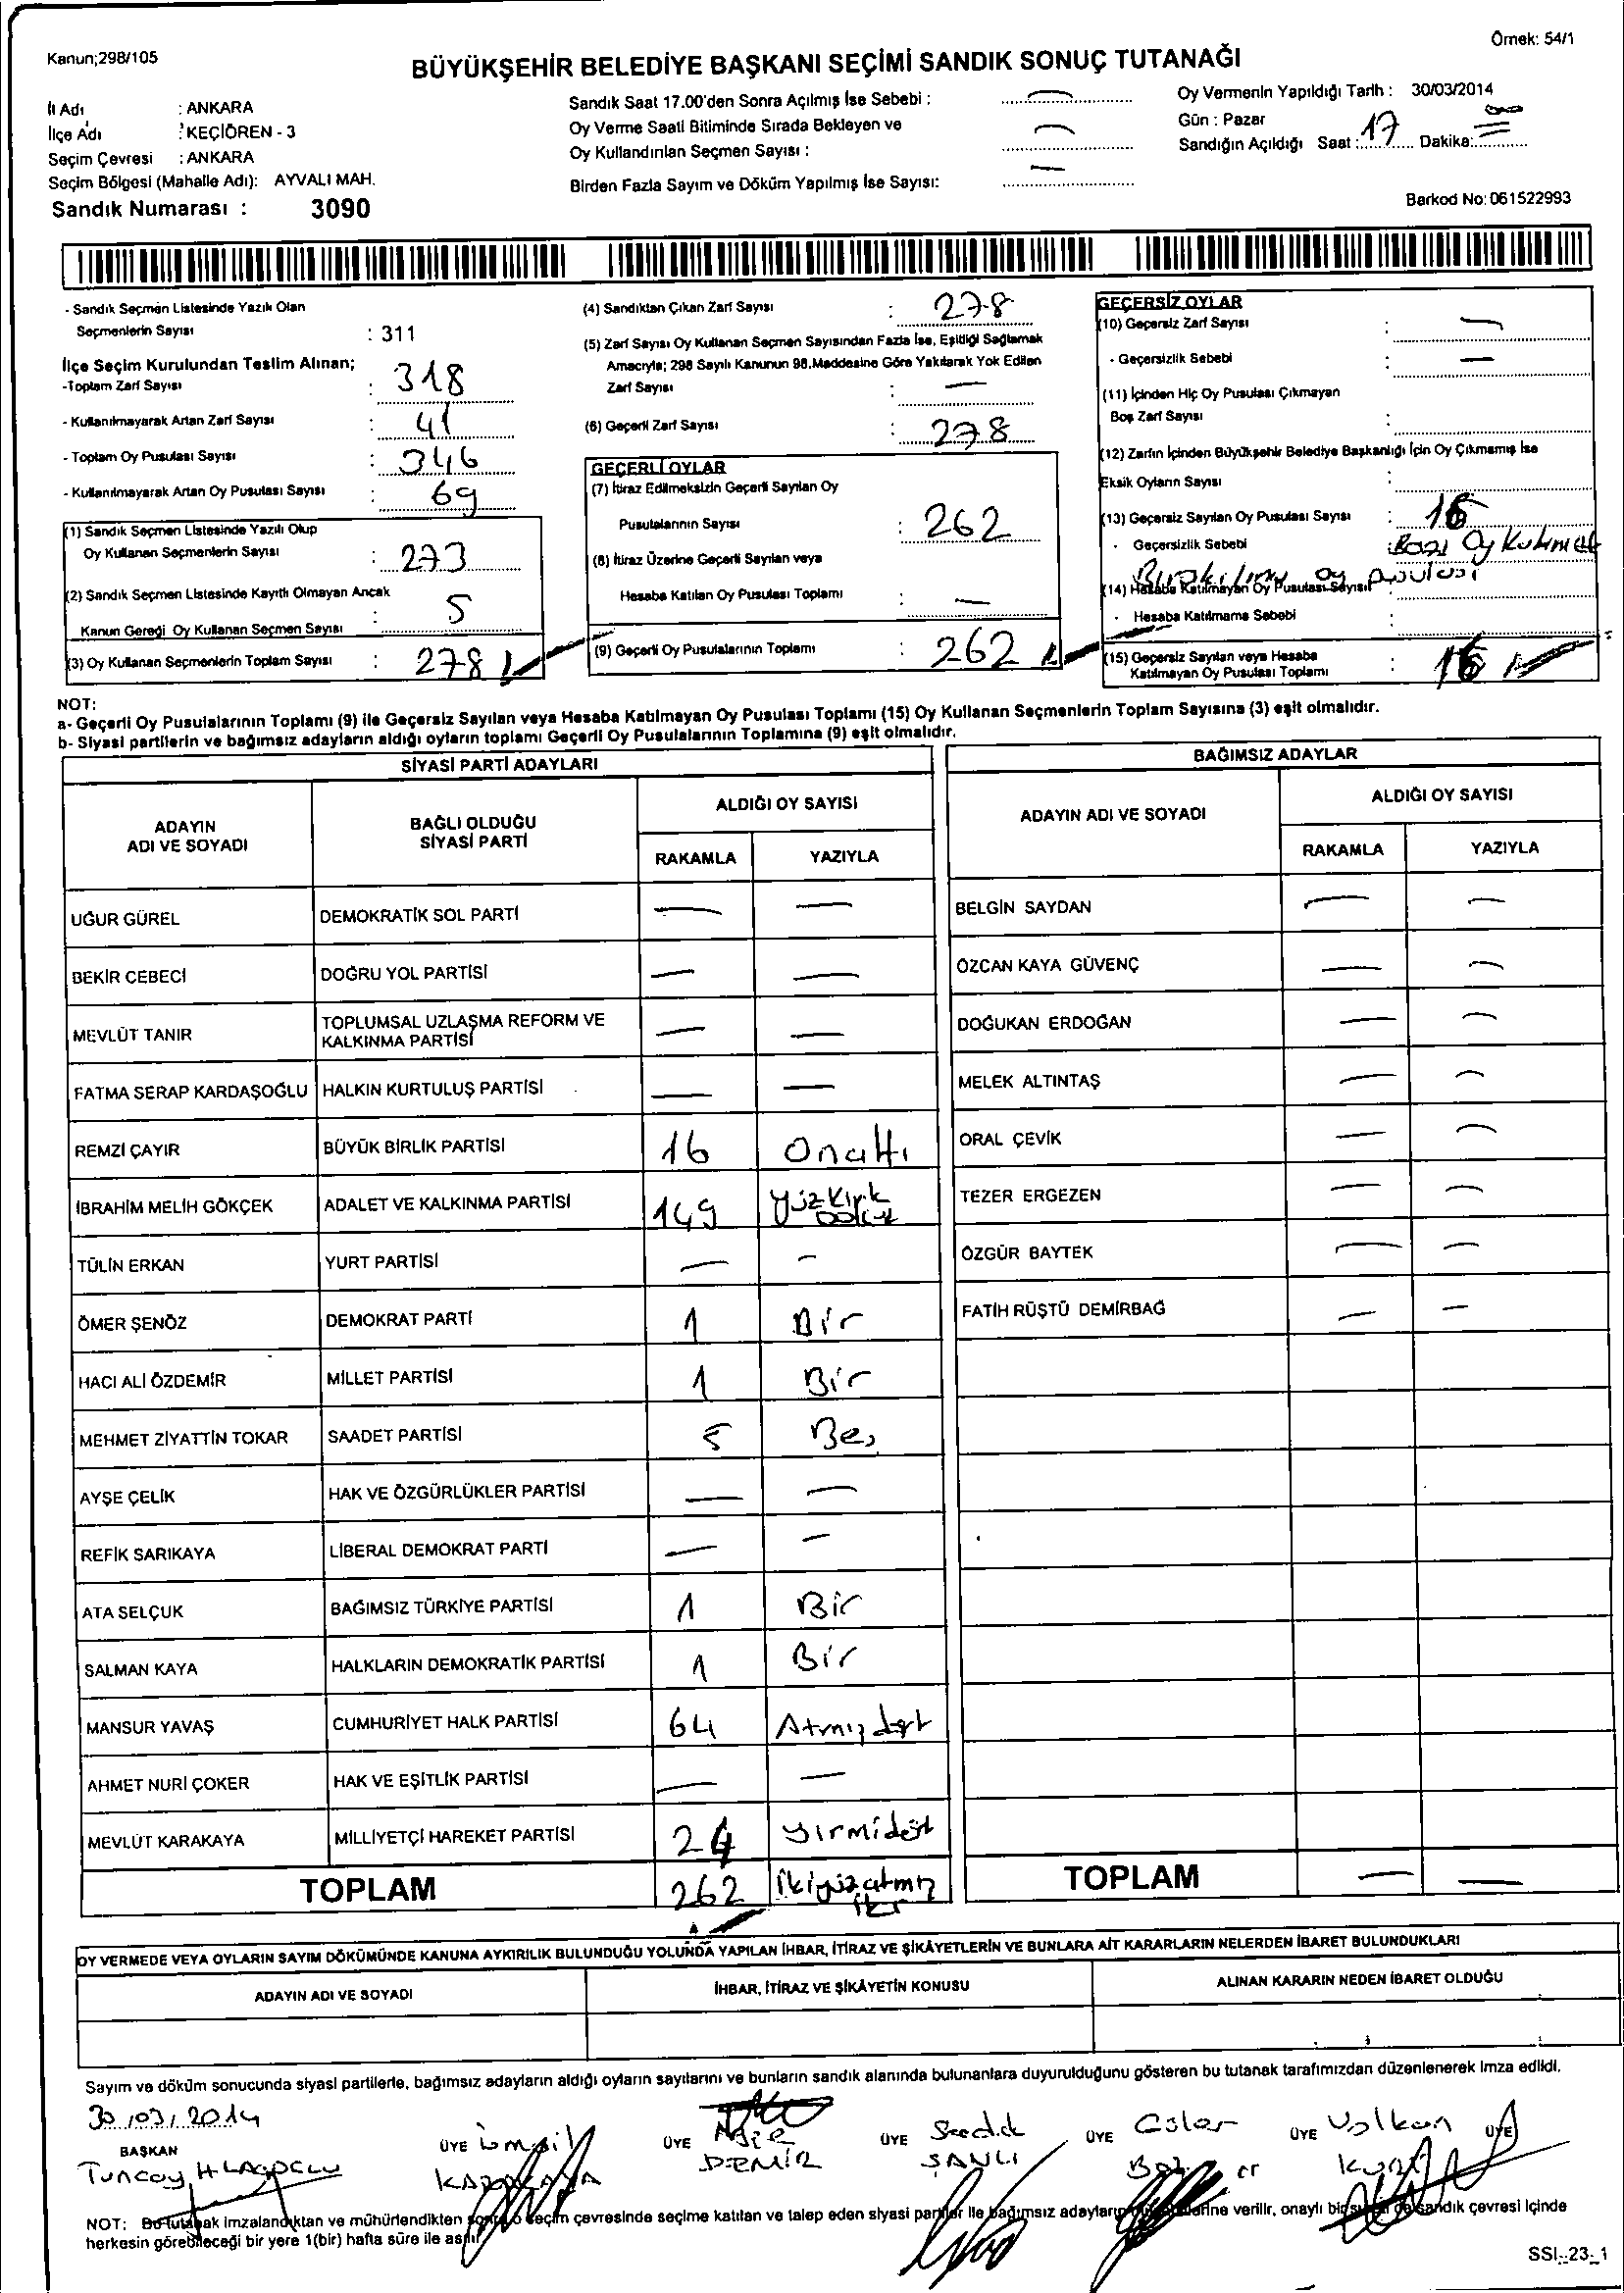 Kanun;298/105
Örnek: 54/1
BÜYÜKŞEHİR BELEDİYE BAŞKANI SEÇİMİ SANDIK SONUÇ TUTANAĞI
İl Adı : ANKARA
İlçe Adı : KEÇİÖREN - 3
Seçim Çevresi : ANKARA
Seçim Bölgesi (Mahalle Adı): AYVALI MAH.
Sandık Numarası : 3090
Sandık Saat 17.00'den Sonra Açılmış İse Sebebi : —
Oy Verme Saati Bitiminde Sırada Bekleyen ve
Oy Kullandırılan Seçmen Sayısı : —
Birden Fazla Sayım ve Döküm Yapılmış İse Sayısı: —
Oy Vermenin Yapıldığı Tarih : 30/03/2014
Gün : Pazar
Sandığın Açıldığı Saat : 17 Dakika:
Barkod No: 061522993
- Sandık Seçmen Listesinde Yazılı Olan
Seçmenlerin Sayısı : 311
İlçe Seçim Kurulundan Teslim Alınan;
-Toplam Zarf Sayısı : 318
- Kullanılmayarak Artan Zarf Sayısı : 41
- Toplam Oy Pusulası Sayısı : 346
- Kullanılmayarak Artan Oy Pusulası Sayısı : 69
(1) Sandık Seçmen Listesinde Yazılı Olup
Oy Kullanan Seçmenlerin Sayısı : 273
(2) Sandık Seçmen Listesinde Kayıtlı Olmayan Ancak
Kanun Gereği Oy Kullanan Seçmen Sayısı : 5
(3) Oy Kullanan Seçmenlerin Toplam Sayısı : 278
(4) Sandıktan Çıkan Zarf Sayısı : 278
(5) Zarf Sayısı Oy Kullanan Seçmen Sayısından Fazla İse, Eşitliği Sağlamak
Amacıyla; 298 Sayılı Kanunun 98.Maddesine Göre Yakılarak Yok Edilen
Zarf Sayısı : —
(6) Geçerli Zarf Sayısı : 278
GEÇERLİ OYLAR
(7) İtiraz Edilmeksizin Geçerli Sayılan Oy
Pusulalarının Sayısı : 262
(8) İtiraz Üzerine Geçerli Sayılan veya
Hesaba Katılan Oy Pusulası Toplamı : —
(9) Geçerli Oy Pusulalarının Toplamı : 262
GEÇERSİZ OYLAR
(10) Geçersiz Zarf Sayısı : —
- Geçersizlik Sebebi : —
(11) İçinden Hiç Oy Pusulası Çıkmayan
Boş Zarf Sayısı :
(12) Zarfın İçinden Büyükşehir Belediye Başkanlığı İçin Oy Çıkmamış İse
Eksik Oyların Sayısı :
(13) Geçersiz Sayılan Oy Pusulası Sayısı : 16
- Geçersizlik Sebebi : Oy
oy pusulası
(14) Hesaba Katılmayan Oy Pusulası Sayısı
- Hesaba Katılmama Sebebi :
(15) Geçersiz Sayılan veya Hesaba
Katılmayan Oy Pusulası Toplamı : 16
NOT:
a- Geçerli Oy Pusulalarının Toplamı (9) ile Geçersiz Sayılan veya Hesaba Katılmayan Oy Pusulası Toplamı (15) Oy Kullanan Seçmenlerin Toplam Sayısına (3) eşit olmalıdır.
b- Siyasi partilerin ve bağımsız adayların aldığı oyların toplamı Geçerli Oy Pusulalarının Toplamına (9) eşit olmalıdır.
SİYASİ PARTİ ADAYLARI
ADAYIN ADI VE SOYADI
BAĞLI OLDUĞU SİYASİ PARTİ
ALDIĞI OY SAYISI
RAKAMLA YAZIYLA
UĞUR GÜREL DEMOKRATİK SOL PARTİ — —
BEKİR CEBECİ DOĞRU YOL PARTİSİ — —
MEVLÜT TANIR TOPLUMSAL UZLAŞMA REFORM VE KALKINMA PARTİSİ — —
FATMA SERAP KARDAŞOĞLU HALKIN KURTULUŞ PARTİSİ — —
REMZİ ÇAYIR BÜYÜK BİRLİK PARTİSİ 16 Onaltı
İBRAHİM MELİH GÖKÇEK ADALET VE KALKINMA PARTİSİ 149 Yüz Kırk Dokuz
TÜLİN ERKAN YURT PARTİSİ — —
ÖMER ŞENÖZ DEMOKRAT PARTİ 1 Bir
HACI ALİ ÖZDEMİR MİLLET PARTİSİ 1 Bir
MEHMET ZİYATTİN TOKAR SAADET PARTİSİ 5 Beş
AYŞE ÇELİK HAK VE ÖZGÜRLÜKLER PARTİSİ — —
REFİK SARIKAYA LİBERAL DEMOKRAT PARTİ — —
ATA SELÇUK BAĞIMSIZ TÜRKİYE PARTİSİ 1 Bir
SALMAN KAYA HALKLARIN DEMOKRATİK PARTİSİ 1 Bir
MANSUR YAVAŞ CUMHURİYET HALK PARTİSİ 64 Atmışdört
AHMET NURİ ÇOKER HAK VE EŞİTLİK PARTİSİ — —
MEVLÜT KARAKAYA MİLLİYETÇİ HAREKET PARTİSİ 24 yirmidört
TOPLAM 262 İkiyüzatmış iki
BAĞIMSIZ ADAYLAR
ADAYIN ADI VE SOYADI
ALDIĞI OY SAYISI
RAKAMLA YAZIYLA
BELGİN SAYDAN — —
ÖZCAN KAYA GÜVENÇ — —
DOĞUKAN ERDOĞAN — —
MELEK ALTINTAŞ — —
ORAL ÇEVİK — —
TEZER ERGEZEN — —
ÖZGÜR BAYTEK — —
FATİH RÜŞTÜ DEMİRBAĞ — —
TOPLAM — —
OY VERMEDE VEYA OYLARIN SAYIM DÖKÜMÜNDE KANUNA AYKIRILIK BULUNDUĞU YOLUNDA YAPILAN İHBAR, İTİRAZ VE ŞİKÂYETLERİN VE BUNLARA AİT KARARLARIN NELERDEN İBARET BULUNDUKLARI
ADAYIN ADI VE SOYADI
İHBAR, İTİRAZ VE ŞİKÂYETİN KONUSU
ALINAN KARARIN NEDEN İBARET OLDUĞU
Sayım ve döküm sonucunda siyasi partilerle, bağımsız adayların aldığı oyların sayılarını ve bunların sandık alanında bulunanlara duyurulduğunu gösteren bu tutanak tarafımızdan düzenlenerek imza edildi.
30/03/2014
BAŞKAN ÜYE İsmail ÜYE ÜYE Seedat ÜYE Güler ÜYE Volkan ÜYE
Tuncay DEMİR ŞANLI
NOT: Bu tutanak imzalandıktan ve mühürlendikten sonra o seçim çevresinde seçime katılan ve talep eden siyasi partiler ile bağımsız adayların verilir, onaylı bir sandık çevresi içinde
herkesin görebileceği bir yere 1(bir) hafta süre ile asılır
SSI_:23:_1